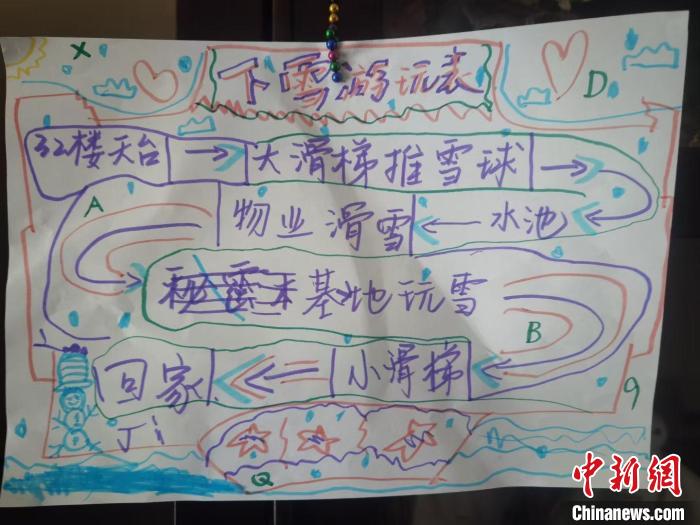 X
下雪游玩表
D
32楼天台 → 大滑梯推雪球 →
A
物业滑雪 ← 水池
基地玩雪
B
回家 ← 小滑梯
9
Ji
Q
中新网
Chinanews.com